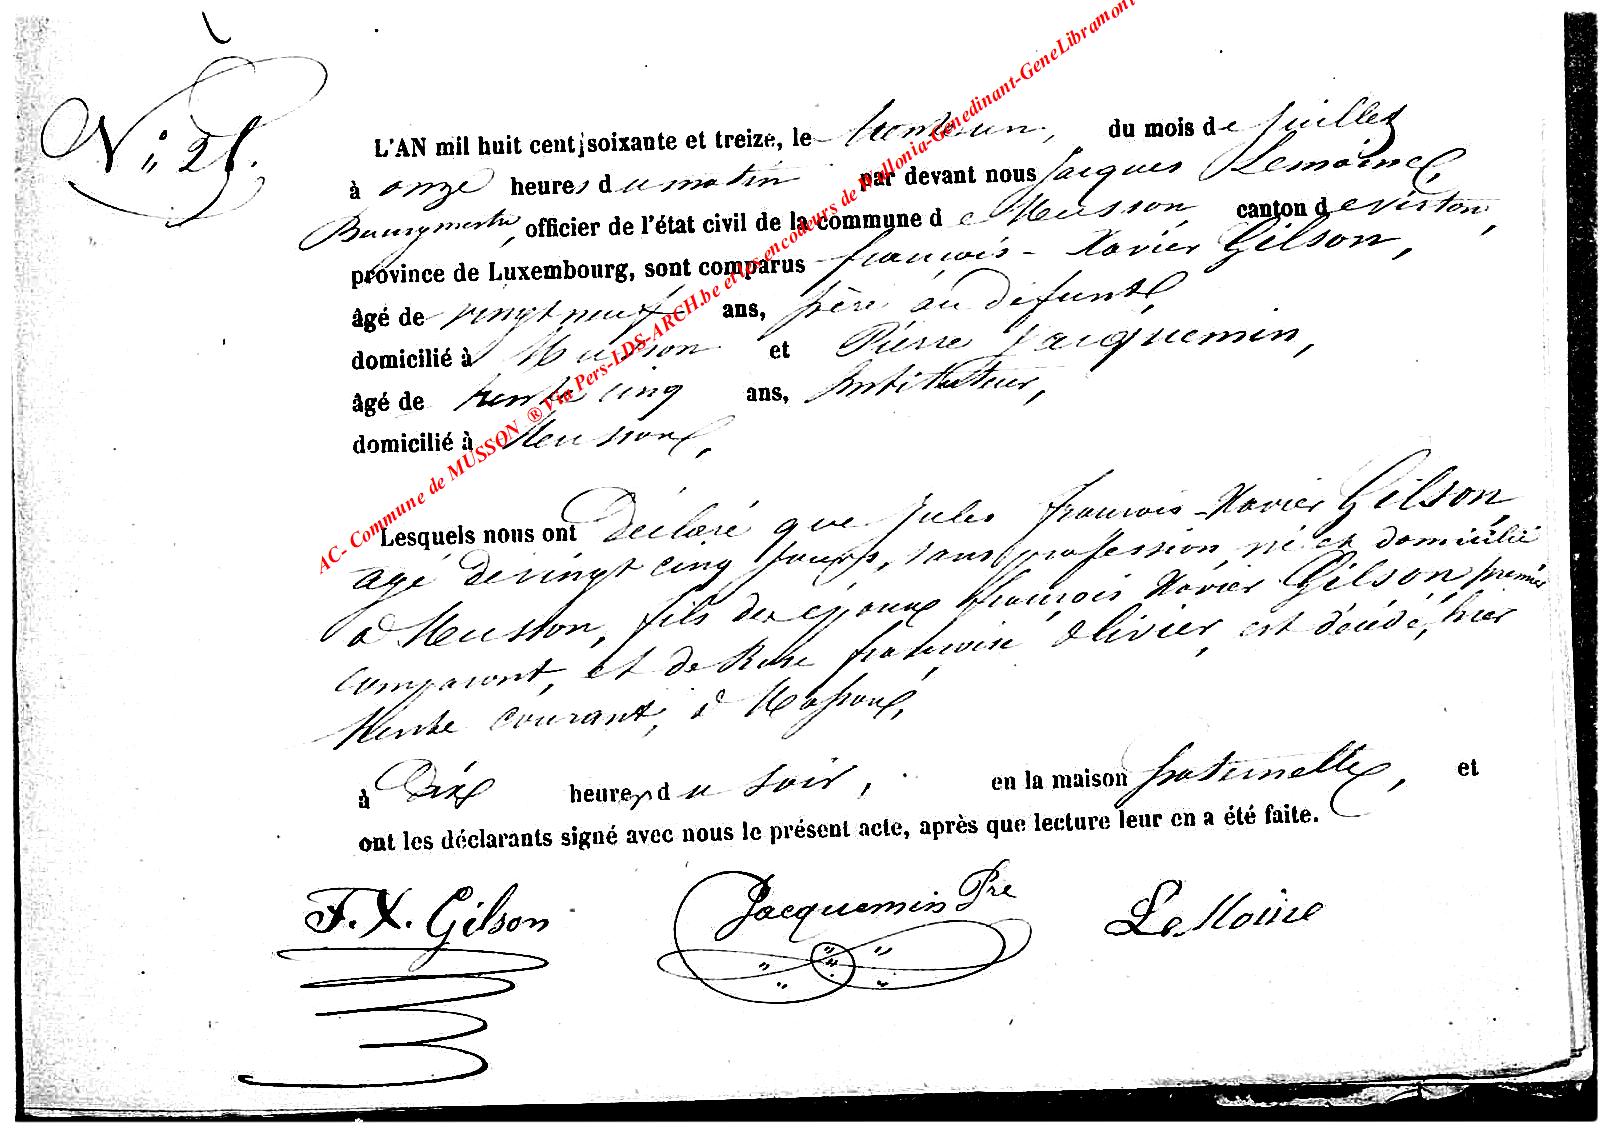 N° 21.
L'AN mil huit cent soixante et treize, le trente un, du mois de juillet
à onze heures du matin par devant nous Jacques Lemoine,
Bourgmestre, officier de l'état civil de la commune de Musson, canton de Virton,
province de Luxembourg, sont comparus françois-Xavier Gilson,
âgé de vingt neuf ans, père au défunt,
domicilié à Musson et Pierre Jacquemin,
âgé de trente cinq ans, Instituteur,
domicilié à Musson,
Lesquels nous ont Déclaré que Jules françois-Xavier Gilson,
agé de vingt cinq jours, sans profession, né et domicilié
à Musson, fils des époux françois Xavier Gilson, premier
comparant, et de Rose françoise Olivier, est décédé, hier
trente courant, à Musson,
à Dix heures du soir, en la maison paternelle, et
ont les déclarants signé avec nous le présent acte, après que lecture leur en a été faite.
F. X. Gilson Jacquemin Pre LeMoine
AC- Commune de MUSSON ® Via Pers-LDS-ARCH.be et les encodeurs de Wallonia-Genedinant-GeneLibramont